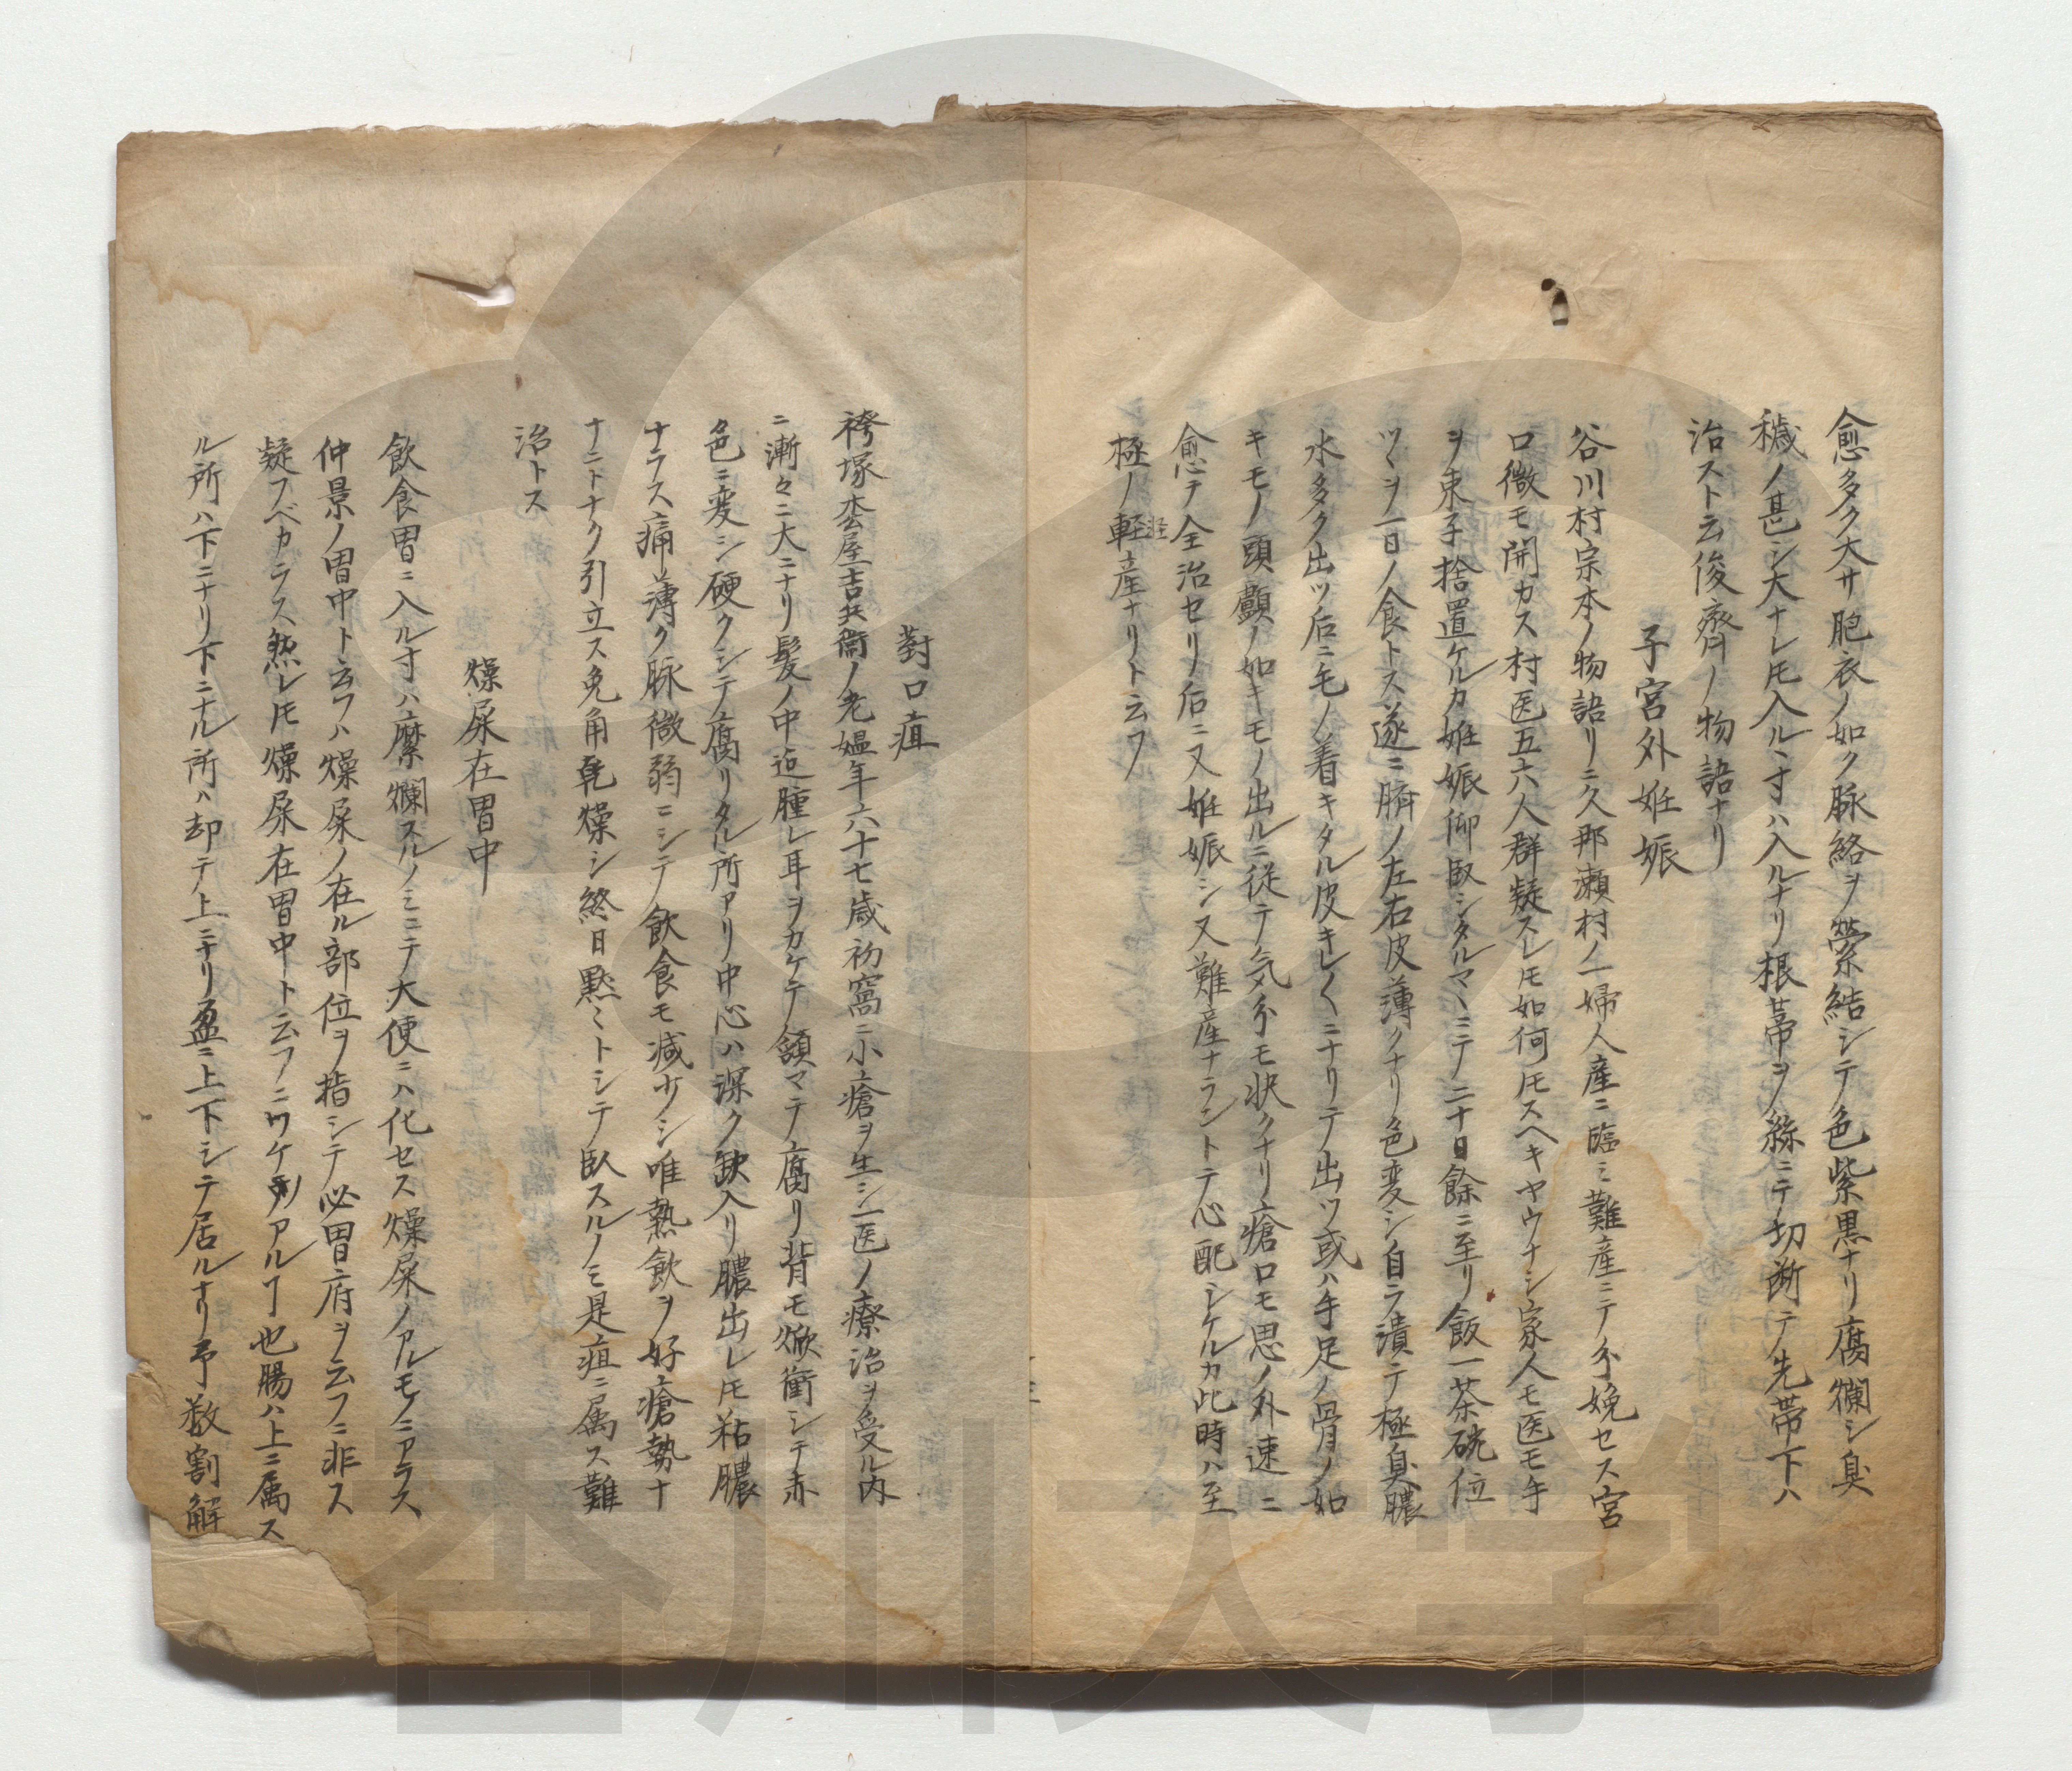 愈多ク大サ胞衣ノ如ク脉絡ヲ縈結シテ色紫黒ナリ腐爛シ臭
穢ノ甚シ大ナレ𪜈入ルヽ寸ハ入ルナリ根蒂ヲ絲ニテ切断テ先帯下ハ
治スト云俊齊ノ物語ナリ
子宮外妊娠
谷川村宗本ノ物語リニ久那瀬村ノ一婦人産ニ臨ミ難産ニテ分娩セス宮
口微モ開カス村医五六人群疑スレ𪜈如何𪜈スヘキヤウナシ家人モ医モ手
ヲ束子捨置ケルカ妊娠仰臥シタルマヽニテ二十日餘ニ至リ飯一茶碗位
ツヽヲ一日ノ食トス遂ニ臍ノ左右皮薄クナリ色変シ自ラ潰テ極臭膿
水多ク出ツ后ニ毛ノ着キタル皮キレ〱ニナリテ出ツ或ハ手足ノ骨ノ如
キモノ頭顱ノ如キモノ出ルニ従テ気分モ状クナリ瘡口モ思ノ外速ニ
愈テ全治セリ后ニ又妊娠シ又難産ナラントテ心配シケルカ此時ハ至
極ノ軽産ナリト云フ
對口疽
袴塚杢屋吉兵衞ノ老媼年六十七歳初窩ニ小瘡ヲ生シ一医ノ療治ヲ受ル内
ニ漸々ニ大ニナリ髪ノ中迠腫レ耳ヲカケテ頷マテ腐リ背モ焮衝シテ赤
色ニ変シ硬クシテ腐リタル所アリ中心ハ深ク缺入リ膿出レ𪜈粘膿
ナラス痛薄ク脉微弱ニシテ飲食モ减少シ唯熱飲ヲ好瘡勢ナ
ナニトナク引立ス兔角乾燥シ終日黙ミトシテ臥スルノミ是疽ニ属ス難
治トス
燥屎在胃中
飲食胃ニ入ル寸ハ糜爛スルノミニテ大便ニハ化セス燥屎ノアルモノニアラス
仲景ノ胃中ト云フハ燥屎ノ在ル部位ヲ指シテ必胃府ヲ云フニ非ス
疑フベカラス然レ𪜈燥屎在胃中ト云フニワケアルヿ也腸ハ上ニ属ス
ル所ハ下ニナリ下ニナル所ハ却テ上ニナリ互ニ上下シテ居ルナリ予数割解